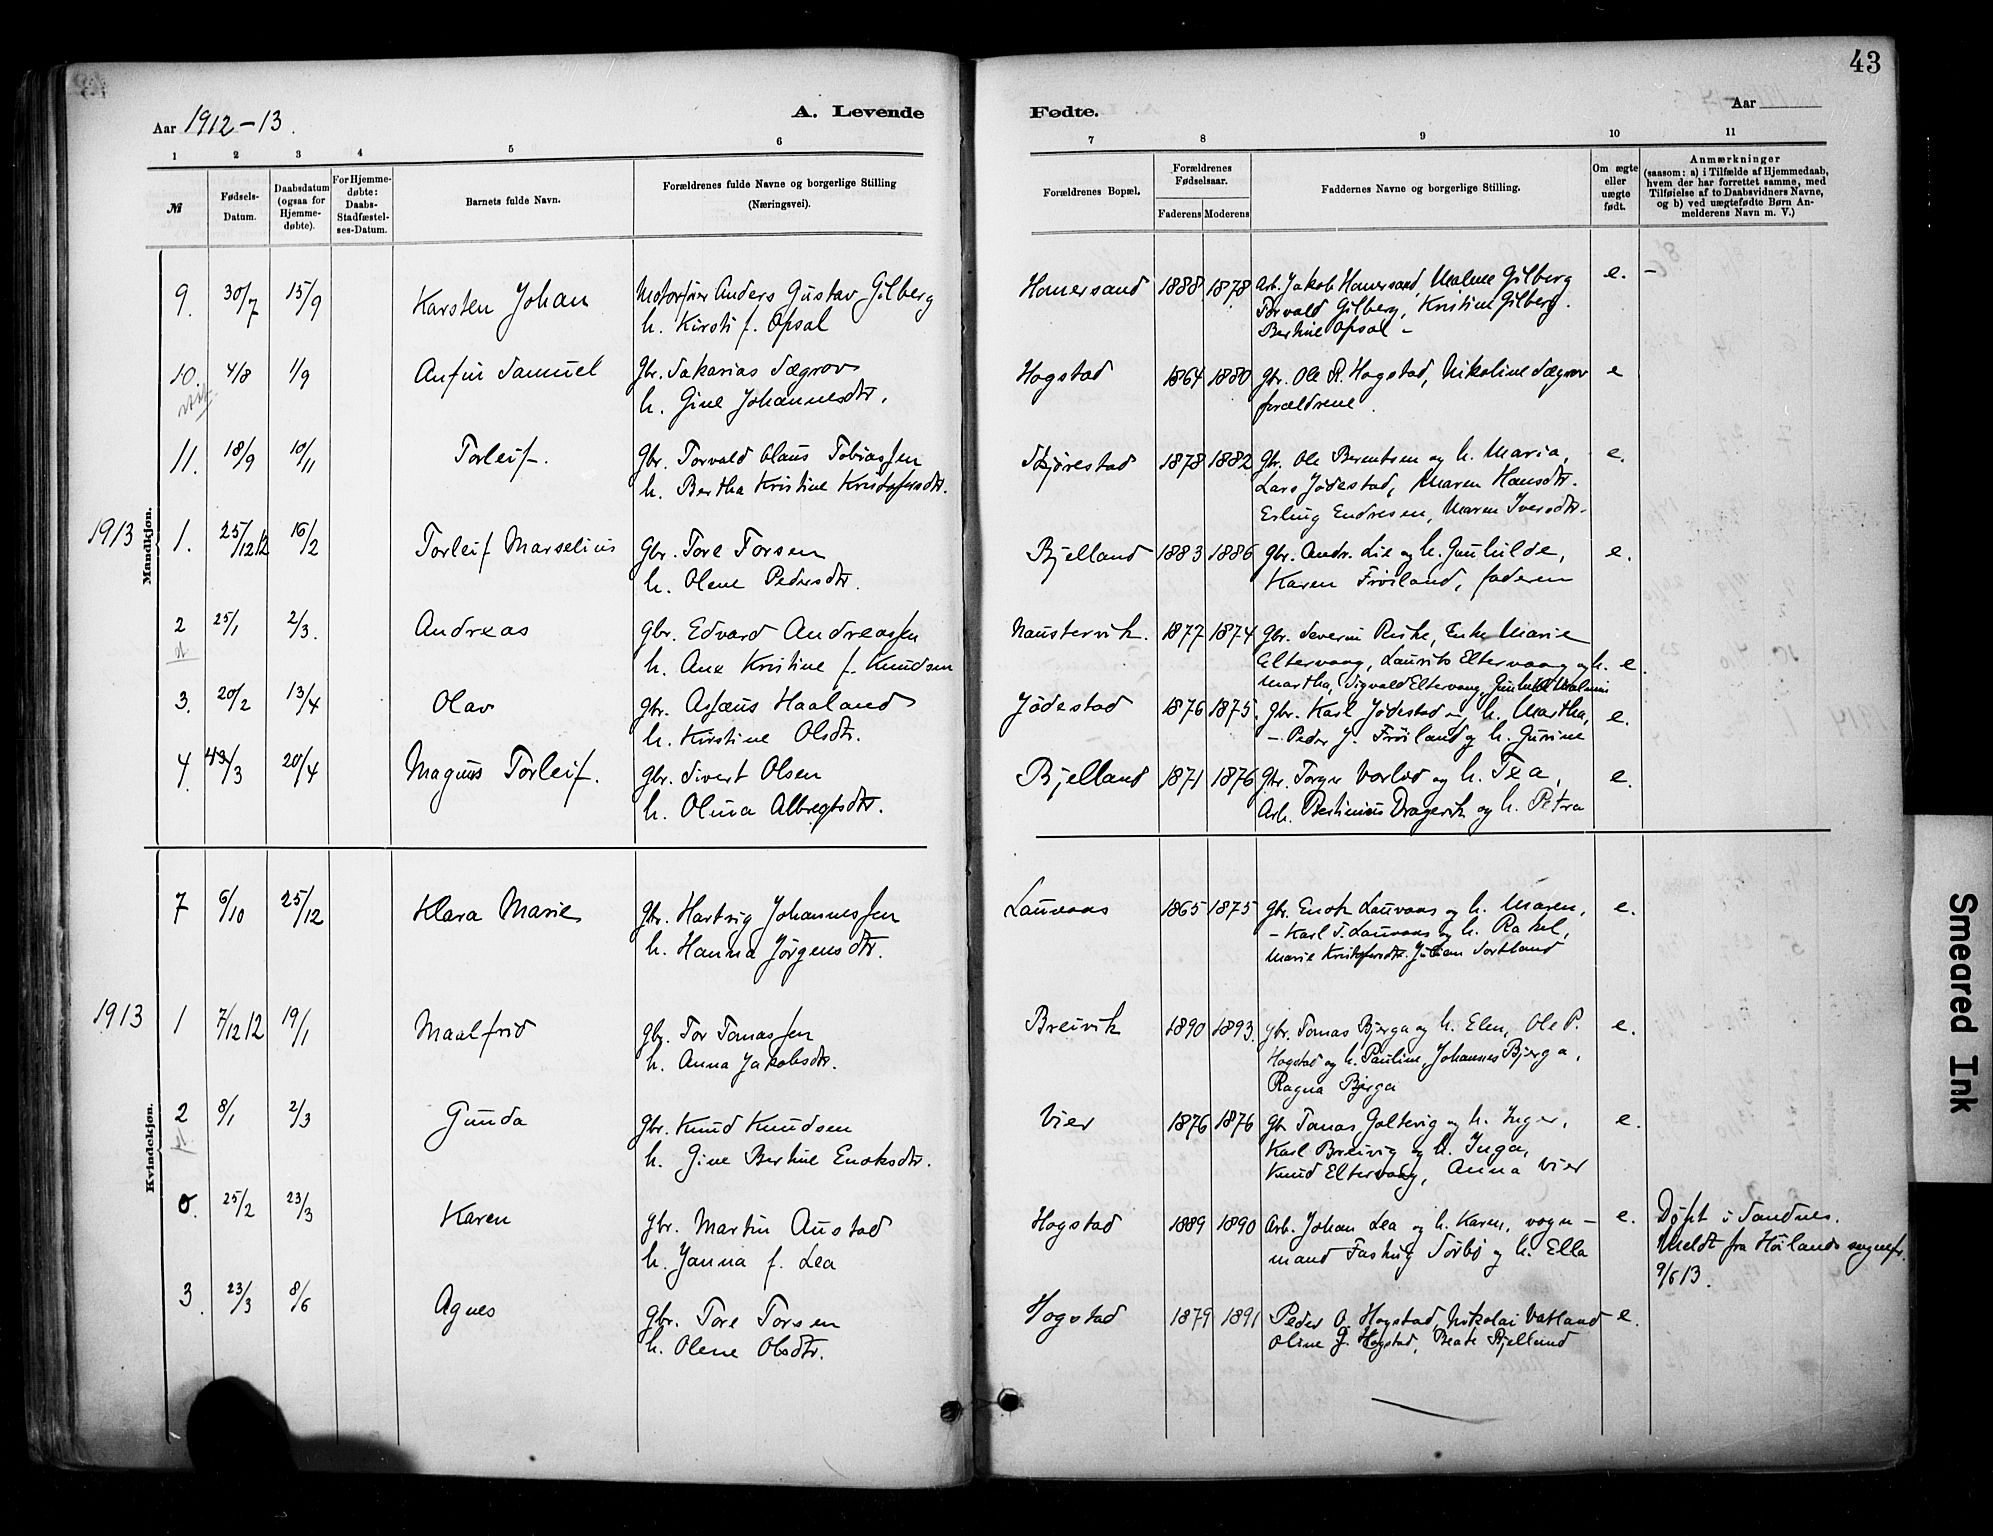 43
Aar 1912-13.
A. Levende
Fødte.
Aar
1 2 3 4 5 6 7 8 9 10 11
№
Fødsels-Datum.
Daabsdatum (ogsaa for Hjemme-døbte).
For Hjemme-døbte: Daabs-Stadfæstel-ses-Datum.
Barnets fulde Navn.
Forældrenes fulde Navne og borgerlige Stilling (Næringsvei).
Forældrenes Bopæl.
Forældrenes Fødselsaar.
Faderens Moderens
Faddernes Navne og borgerlige Stilling.
Om ægte eller uægte født.
Anmærkninger
(saasom: a) i Tilfælde af Hjemmedaab, hvem der har forrettet samme, med Tilføielse af to Daabsvidners Navne, og b) ved uægtefødte Børn An-melderens Navn m. V.)
Mandkjøn.
9. 30/7 15/9 Karsten Johan Motorfører Anders Gustav Gilberg Homersand 1888 1878 Arb. Jakob Homersand Malene Gilberg e. -
h. Kirsti f. Opsal Torvald Gilberg, Kristine Gilberg.
Bertine Opsal -
10. 4/8 1/9 Anfin Samuel Gbr. Sakarias Sægrov Hogstad 1864 1880 Gbr. Ole R. Hogstad, Nikoline Sægrov e
h. Gine Johannesdtr. forældrene.
11. 18/9 10/11 Torleif. Gbr. Torvald Claus Tobiassen Skjørestad 1878 1882 Gbr. Ole Berentsen og h. Maria, e.
h. Bertha Kristine Kristofersdtr. Lars Jødestad, Maren Hansdtr.
Erling Endresen, Maren Iversdtr.
1913 1. 25/12 12 16/2 Torleif Marselius Gbr. Tore Torsen Bjelland 1883 1886 Gbr. Andr. Lie og h. Gunhilde, e.
h. Olene Pedersdtr. Karen Frøiland, faderen
2 25/1 2/3. Andreas Gbr. Edvard Andreassen Naustervik. 1877 1874 Gbr. Severin Riske, Enke Marie
h. Ane Kristine f. Knudsen Eltervaag, Laurits Eltervaag og h. e.
Martha, Sigvald Eltervaag, Gunhild
3. 20/2 13/4 Olav Gbr. Asseus Haaland Jødestad 1876 1875. Gbr. Karl Jødestad og h. Martha, e.
h. Kirstine Olsdtr. - Peder J. Frøiland og h. Gurine
4. /3 20/4 Magnus Torleif. Gbr. Sivert Olsen Bjelland 1871 1876 Gbr. Torger Varlid og h. Tea, e.
h. Olina Albregtsdtr. Arb. Bertinius Dragevik og h. Petra
Kvindekjøn.
7 6/10 25/12 Klara Marie Gbr. Hartvig Johannessen Lauvaas 1865 1875 Gbr. Enok Lauvaas og h. Maren, e.
h. Hanna Jørgensdtr. - Karl T. Lauvaas og h. Rakel,
Marie Kristofersdtr. Julian Sortland
1913 1 7/12 12 19/1 Maalfrid Gbr. Tor Tomassen Breivik 1890 1893. Gbr. Tomas Bjerga og h. Elen, Ole P. e.
h. Anna Jakobsdtr. Hogstad og h. Pauline, Johannes Bjerga,
Ragna Bjerga
2 8/1 2/3 Gunda Gbr. Knud Knudsen Vier 1876 1876 Gbr Tomas Joltevig og h. Inger, e.
h. Gine Bertine Enoksdtr. Karl Breivig og h. Inga,
Knud Eltervaag, Anna Vier
0. 25/2 23/3 Karen Gbr. Martin Austad Hogstad 1889 1890 Arb. Johan Lea og h. Karen, vogn- e. Døpt i Sandnes.
h. Janna f. Lea mand Fasting Sørbø og h. Ella Meldt fra Høilands sognepr.
9/6 13.
3. 23/3 8/6 Agnes Gbr. Tore Torsen Hogstad 1879 1891 Peder O. Hogstad, Nikolai Vatland e.
h. Olene Olsdtr. Oline G. Hogstad, Beate Bjelland
Smeared Ink